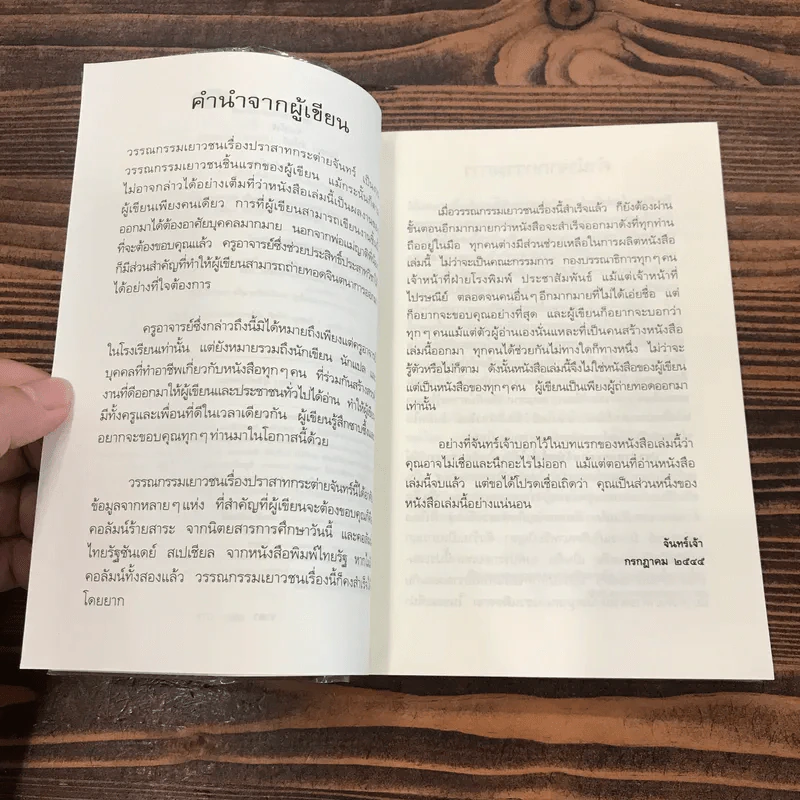 คำนำจากผู้เขียน
วรรณกรรมเยาวชนเรื่องปราสาทกระต่ายจันทร์
วรรณกรรมเยาวชนชิ้นแรกของผู้เขียน แม้กระนั้นก็
ไม่อาจกล่าวได้อย่างเต็มที่ว่าหนังสือเล่มนี้เป็นผลงานของ
ผู้เขียนเพียงคนเดียว การที่ผู้เขียนสามารถเขียนงานชิ้น
ออกมาได้ต้องอาศัยบุคคลมากมาย นอกจากพ่อแม่ญาติพี่น้อง
ที่จะต้องขอบคุณแล้ว ครูอาจารย์ซึ่งช่วยประสิทธิ์ประสาทวิชา
ก็มีส่วนสำคัญที่ทำให้ผู้เขียนสามารถถ่ายทอดจินตนาการออกมา
ได้อย่างที่ใจต้องการ
ครูอาจารย์ซึ่งกล่าวถึงนี้มิได้หมายถึงเพียงแต่ครูอาจารย์
ในโรงเรียนเท่านั้น แต่ยังหมายรวมถึงนักเขียน นักแปล
บุคคลที่ทำอาชีพเกี่ยวกับหนังสือทุกๆคน ที่ร่วมกันสร้างสรรค์
งานที่ดีออกมาให้ผู้เขียนและประชาชนทั่วไปได้อ่าน ทำให้ผู้เขียน
มีทั้งครูและเพื่อนที่ดีในเวลาเดียวกัน ผู้เขียนรู้สึกซาบซึ้ง
อยากจะขอบคุณทุกๆท่านมาในโอกาสนี้ด้วย
วรรณกรรมเยาวชนเรื่องปราสาทกระต่ายจันทร์นี้ได้อาศัย
ข้อมูลจากหลายๆแห่ง ที่สำคัญที่ผู้เขียนจะต้องขอบคุณก็คือ
คอลัมน์ร้ายสาระ จากนิตยสารการศึกษาวันนี้ และคอลัมน์
ไทยรัฐซันเดย์ สเปเชียล จากหนังสือพิมพ์ไทยรัฐ หากไม่
คอลัมน์ทั้งสองแล้ว วรรณกรรมเยาวชนเรื่องนี้ก็คงสำเร็จ
โดยยาก
เมื่อวรรณกรรมเยาวชนเรื่องนี้สำเร็จแล้ว ก็ยังต้องผ่าน
ขั้นตอนอีกมากมายกว่าหนังสือจะสำเร็จออกมาดังที่ทุกท่าน
ถืออยู่ในมือ ทุกคนต่างมีส่วนช่วยเหลือในการผลิตหนังสือ
เล่มนี้ ไม่ว่าจะเป็นคณะกรรมการ กองบรรณาธิการทุกๆคน
เจ้าหน้าที่ฝ่ายโรงพิมพ์ ประชาสัมพันธ์ แม้แต่เจ้าหน้าที่
ไปรษณีย์ ตลอดจนคนอื่นๆอีกมากมายที่ไม่ได้เอ่ยชื่อ แต่
ก็อยากจะขอบคุณอย่างที่สุด และผู้เขียนก็อยากจะบอกว่า
ทุกๆคนแม้แต่ตัวผู้อ่านเองนั่นแหละที่เป็นคนสร้างหนังสือ
เล่มนี้ออกมา ทุกคนได้ช่วยกันไม่ทางใดก็ทางหนึ่ง ไม่ว่าจะ
รู้ตัวหรือไม่ก็ตาม ดังนั้นหนังสือเล่มนี้จึงไม่ใช่หนังสือของผู้เขียน
แต่เป็นหนังสือของทุกๆคน ผู้เขียนเป็นเพียงผู้ถ่ายทอดออกมา
เท่านั้น
อย่างที่จันทร์เจ้าบอกไว้ในบทแรกของหนังสือเล่มนี้ว่า
คุณอาจไม่เชื่อและนึกอะไรไม่ออก แม้แต่ตอนที่อ่านหนังสือ
เล่มนี้จบแล้ว แต่ขอได้โปรดเชื่อเถิดว่า คุณเป็นส่วนหนึ่งของ
หนังสือเล่มนี้อย่างแน่นอน
จันทร์เจ้า
กรกฎาคม ๒๕๔๕